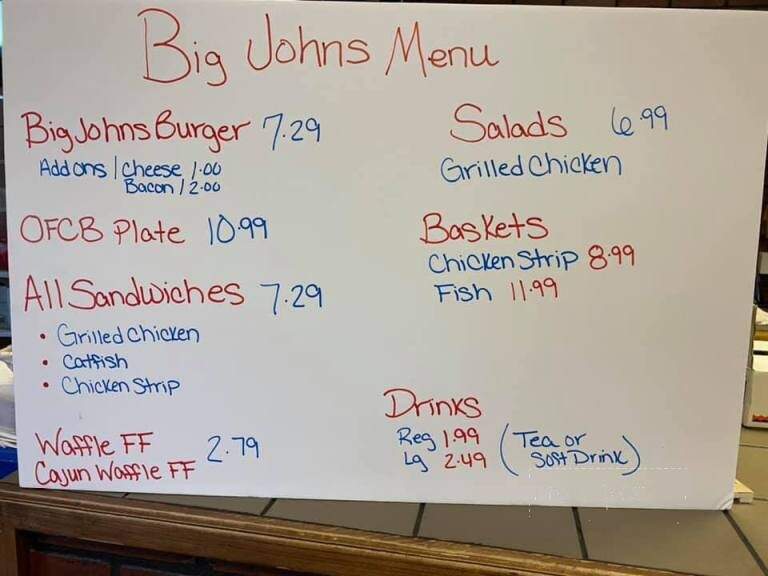 Big Johns Menu
Big Johns Burger 7.29
Add ons | Cheese 1.00
Bacon / 2.00
OFCB Plate 10.99
All Sandwiches 7.29
• Grilled Chicken
• Catfish
• Chicken Strip
Waffle FF 2.79
Cajun Waffle FF
Salads 6.99
Grilled Chicken
Baskets
Chicken Strip 8.99
Fish 11.99
Drinks
Reg 1.99 (Tea or
Lg 2.49 Soft Drink)